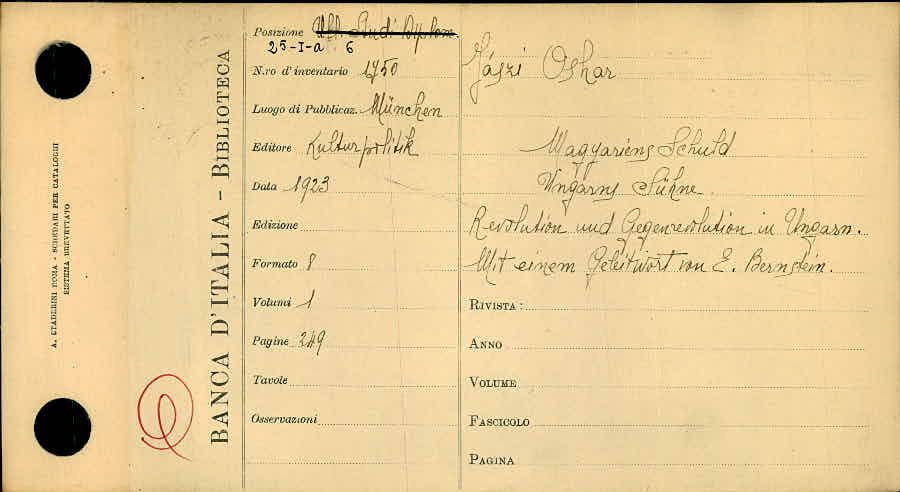 A. STADERINI ROMA - SCHEDARI PER CATALOGHI
SISTEMA BREVETTATO
BANCA D'ITALIA - BIBLIOTECA
Posizione Uff. Studi Diplom.
25-I-a 6
N.ro d'inventario 1750
Luogo di Pubblicaz. München
Editore Kulturpolitik
Data 1923
Edizione
Formato 8
Volumi 1
Pagine 249
Tavole
Osservazioni
Jászi Oskar
Magyariens Schuld
Ungarns Sühne
Revolution und Gegenrevolution in Ungarn.
Mit einem Geleitwort von E. Bernstein.
RIVISTA:
ANNO
VOLUME
FASCICOLO
PAGINA